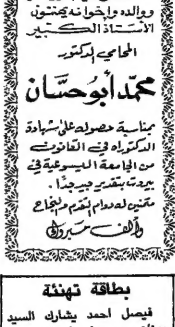 ووالده وإخوانه يهنئون
الأستاذ الكبير
المحامي الدكتور
محمد أبو حسان
بمناسبة حصوله على شهادة
الدكتوراه في القانون
من الجامعة اليسوعية في
بيروت بتقدير جيد جداً.
متمنين له دوام التقدم والنجاح
وألف مبروك
بطاقة تهنئة
فيصل أحمد يشارك السيد